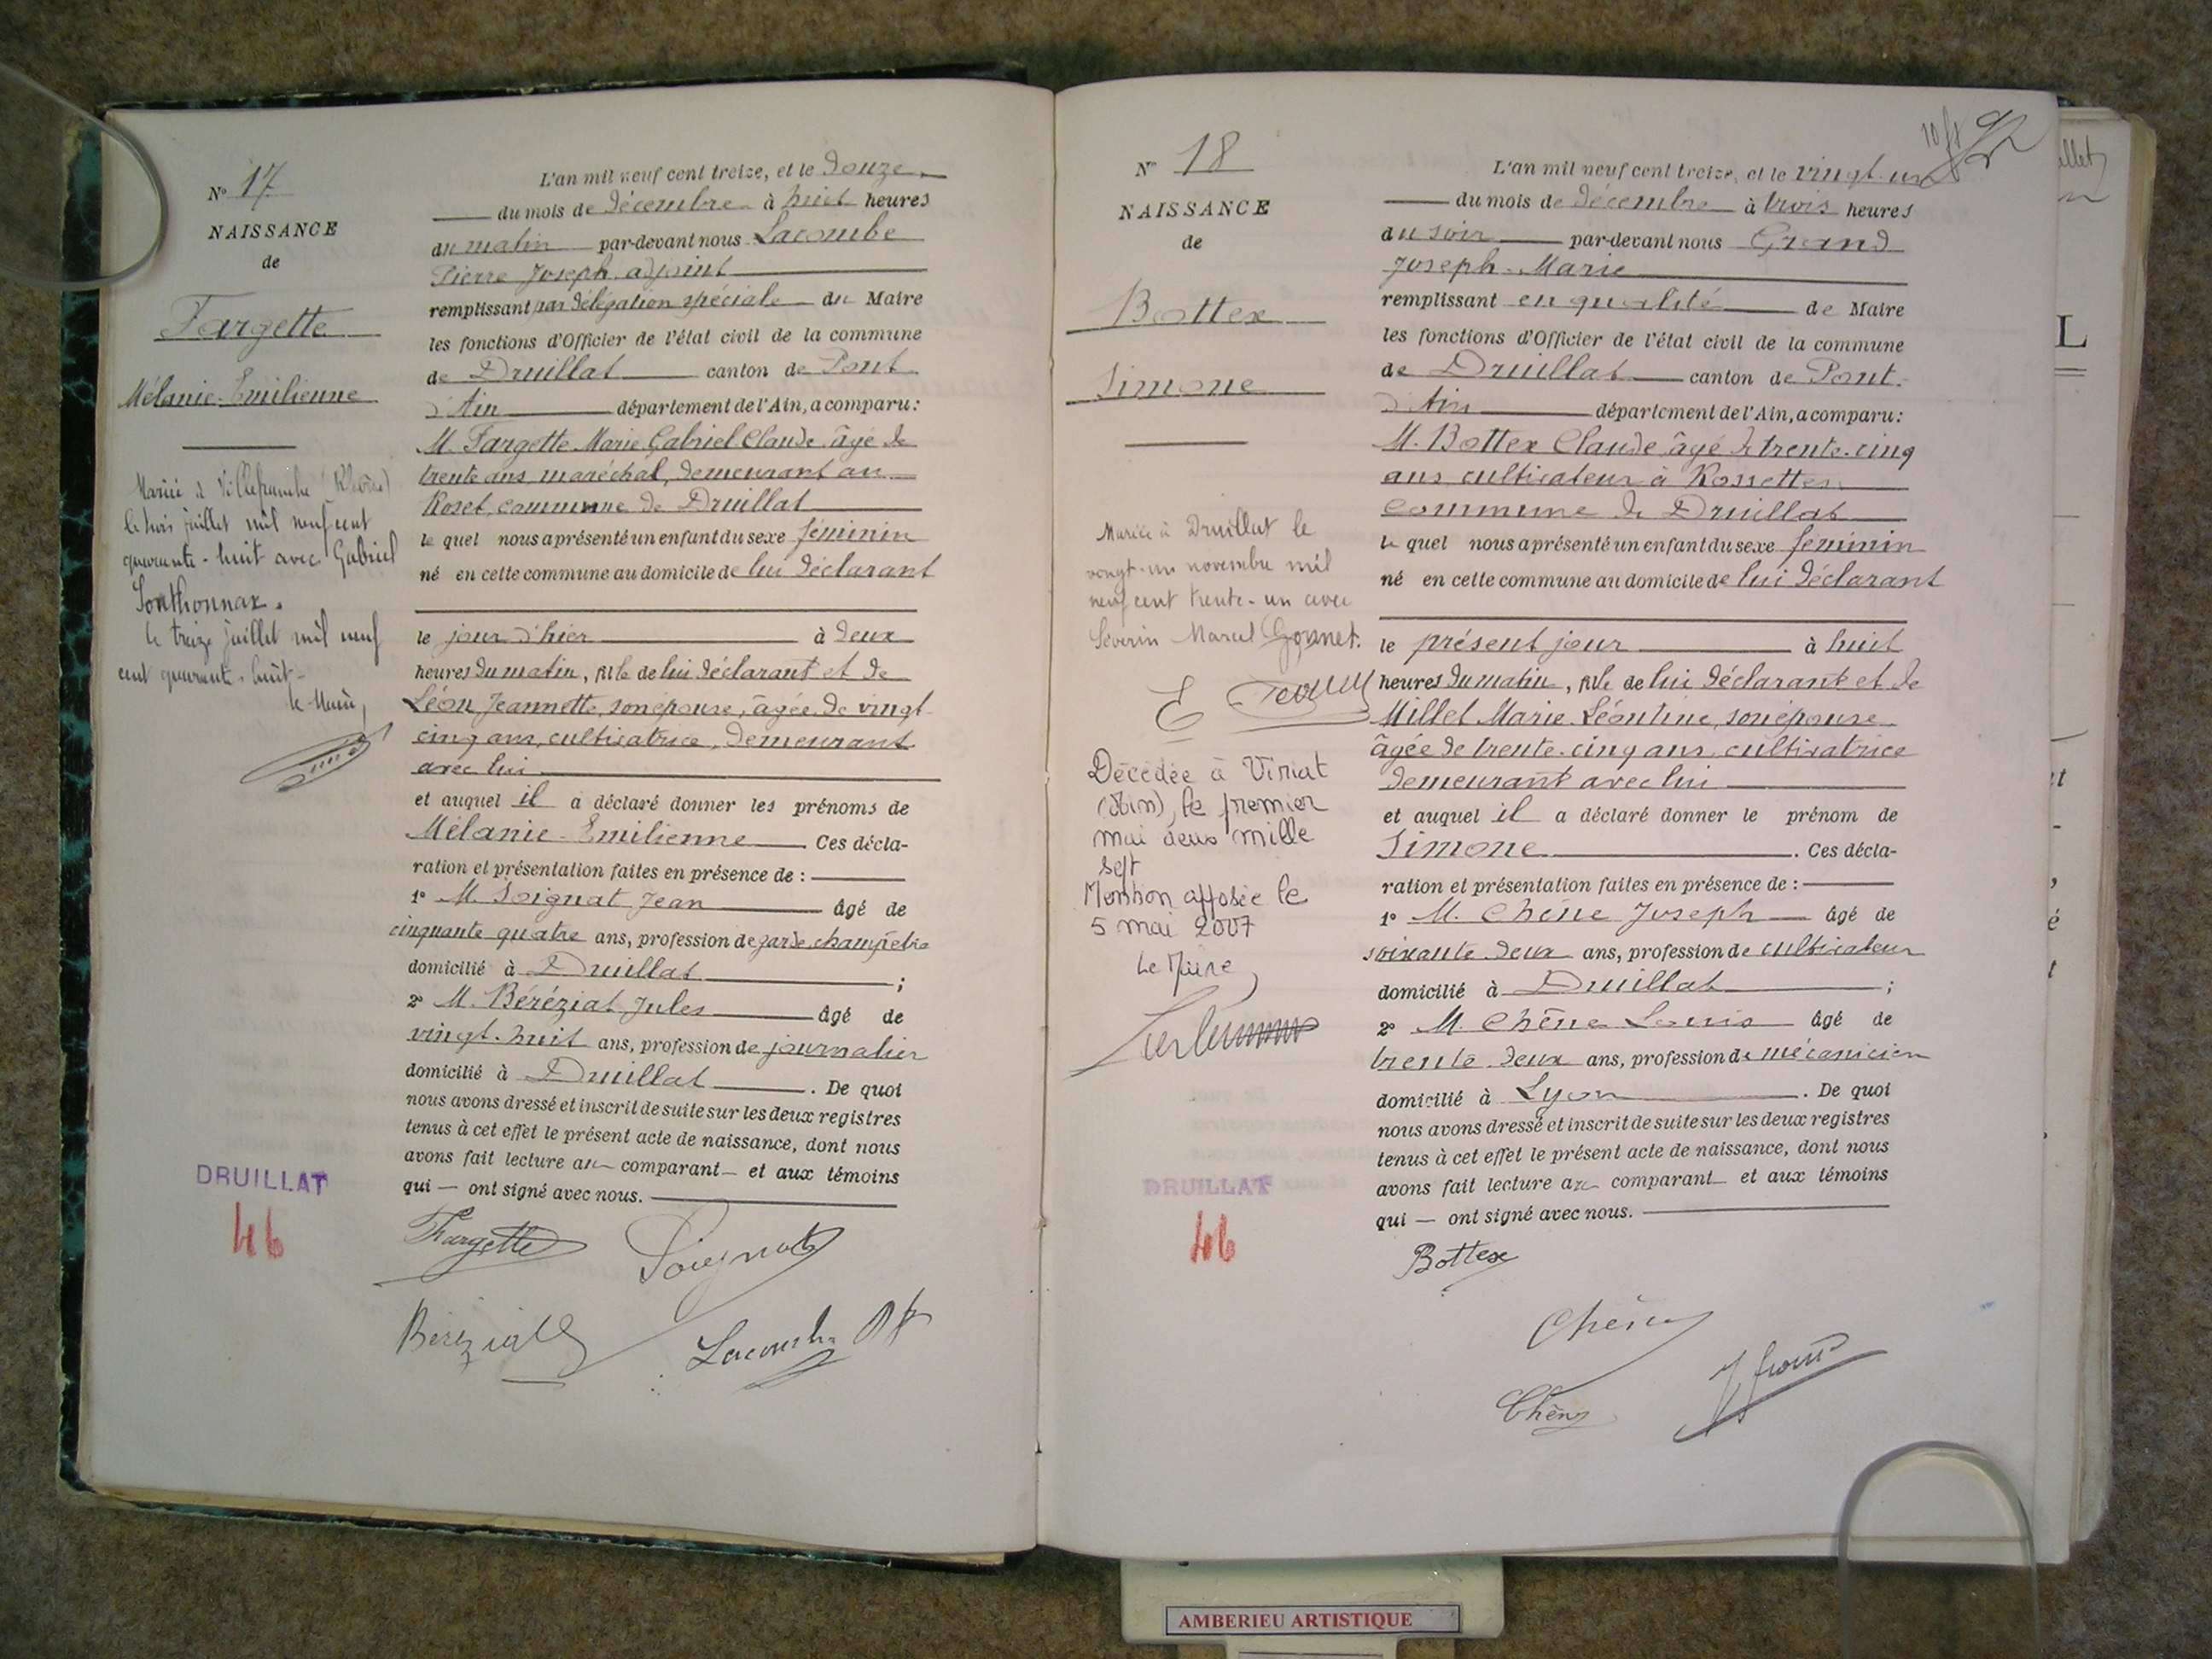 N° 17
NAISSANCE
de
Fargette
Mélanie-Emilienne
Mariée à Villefranche (Rhône)
le trois juillet mil neuf cent
quarante-huit avec Gabriel
Sonthonnax.
le treize juillet mil neuf
cent quarante-huit
le Maire,
DRUILLAT
46
L'an mil neuf cent treize, et le douze
du mois de décembre à huit heures
du matin par-devant nous Lacombe
Pierre Joseph adjoint
remplissant par délégation spéciale du Maire
les fonctions d'Officier de l'état civil de la commune
de Druillat canton de Pont
d'Ain département de l'Ain, a comparu:
M. Fargette Marie Gabriel Claude âgé de
trente ans maréchal, demeurant au
Roset, commune de Druillat
le quel nous a présenté un enfant du sexe féminin
né en cette commune au domicile de lui déclarant
le jour d'hier à deux
heures du matin, fille de lui déclarant et de
Léon Jeannette, son épouse, âgée de vingt
cinq ans, cultivatrice, demeurant
avec lui
et auquel il a déclaré donner les prénoms de
Mélanie-Emilienne Ces décla-
ration et présentation faites en présence de :
1° M. Soignat Jean âgé de
cinquante quatre ans, profession de garde champêtre
domicilié à Druillat ;
2° M. Béréziat Jules âgé de
vingt-huit ans, profession de journalier
domicilié à Druillat . De quoi
nous avons dressé et inscrit de suite sur les deux registres
tenus à cet effet le présent acte de naissance, dont nous
avons fait lecture au comparant et aux témoins
qui — ont signé avec nous.
Fargette Soignat
Béréziat Lacombe
N° 18
NAISSANCE
de
Bottex
Simone
Mariée à Druillat le
vingt-un novembre mil
neuf cent trente-un avec
Séverin Marcel Gonnet.
Décédée à Viriat
(Ain), le premier
mai deux mille
sept
Mention apposée le
5 mai 2007
Le Maire,
DRUILLAT
46
L'an mil neuf cent treize, et le vingt-un
du mois de décembre à trois heures
du soir par-devant nous Grand
Joseph-Marie
remplissant en qualité de Maire
les fonctions d'Officier de l'état civil de la commune
de Druillat canton de Pont-
d'Ain département de l'Ain, a comparu:
M. Bottex Claude âgé de trente-cinq
ans cultivateur à Rossettes
commune de Druillat
le quel nous a présenté un enfant du sexe féminin
né en cette commune au domicile de lui déclarant
le présent jour à huit
heures du matin, fille de lui déclarant et de
Millet Marie-Léontine, son épouse
âgée de trente-cinq ans, cultivatrice
demeurant avec lui
et auquel il a déclaré donner le prénom de
Simone . Ces décla-
ration et présentation faites en présence de :
1° M. Chêne Joseph âgé de
soixante-deux ans, profession de cultivateur
domicilié à Druillat ;
2° M. Chêne Louis âgé de
trente-deux ans, profession de mécanicien
domicilié à Lyon . De quoi
nous avons dressé et inscrit de suite sur les deux registres
tenus à cet effet le présent acte de naissance, dont nous
avons fait lecture au comparant et aux témoins
qui — ont signé avec nous.
Bottex
Chêne
Chêne
AMBERIEU ARTISTIQUE